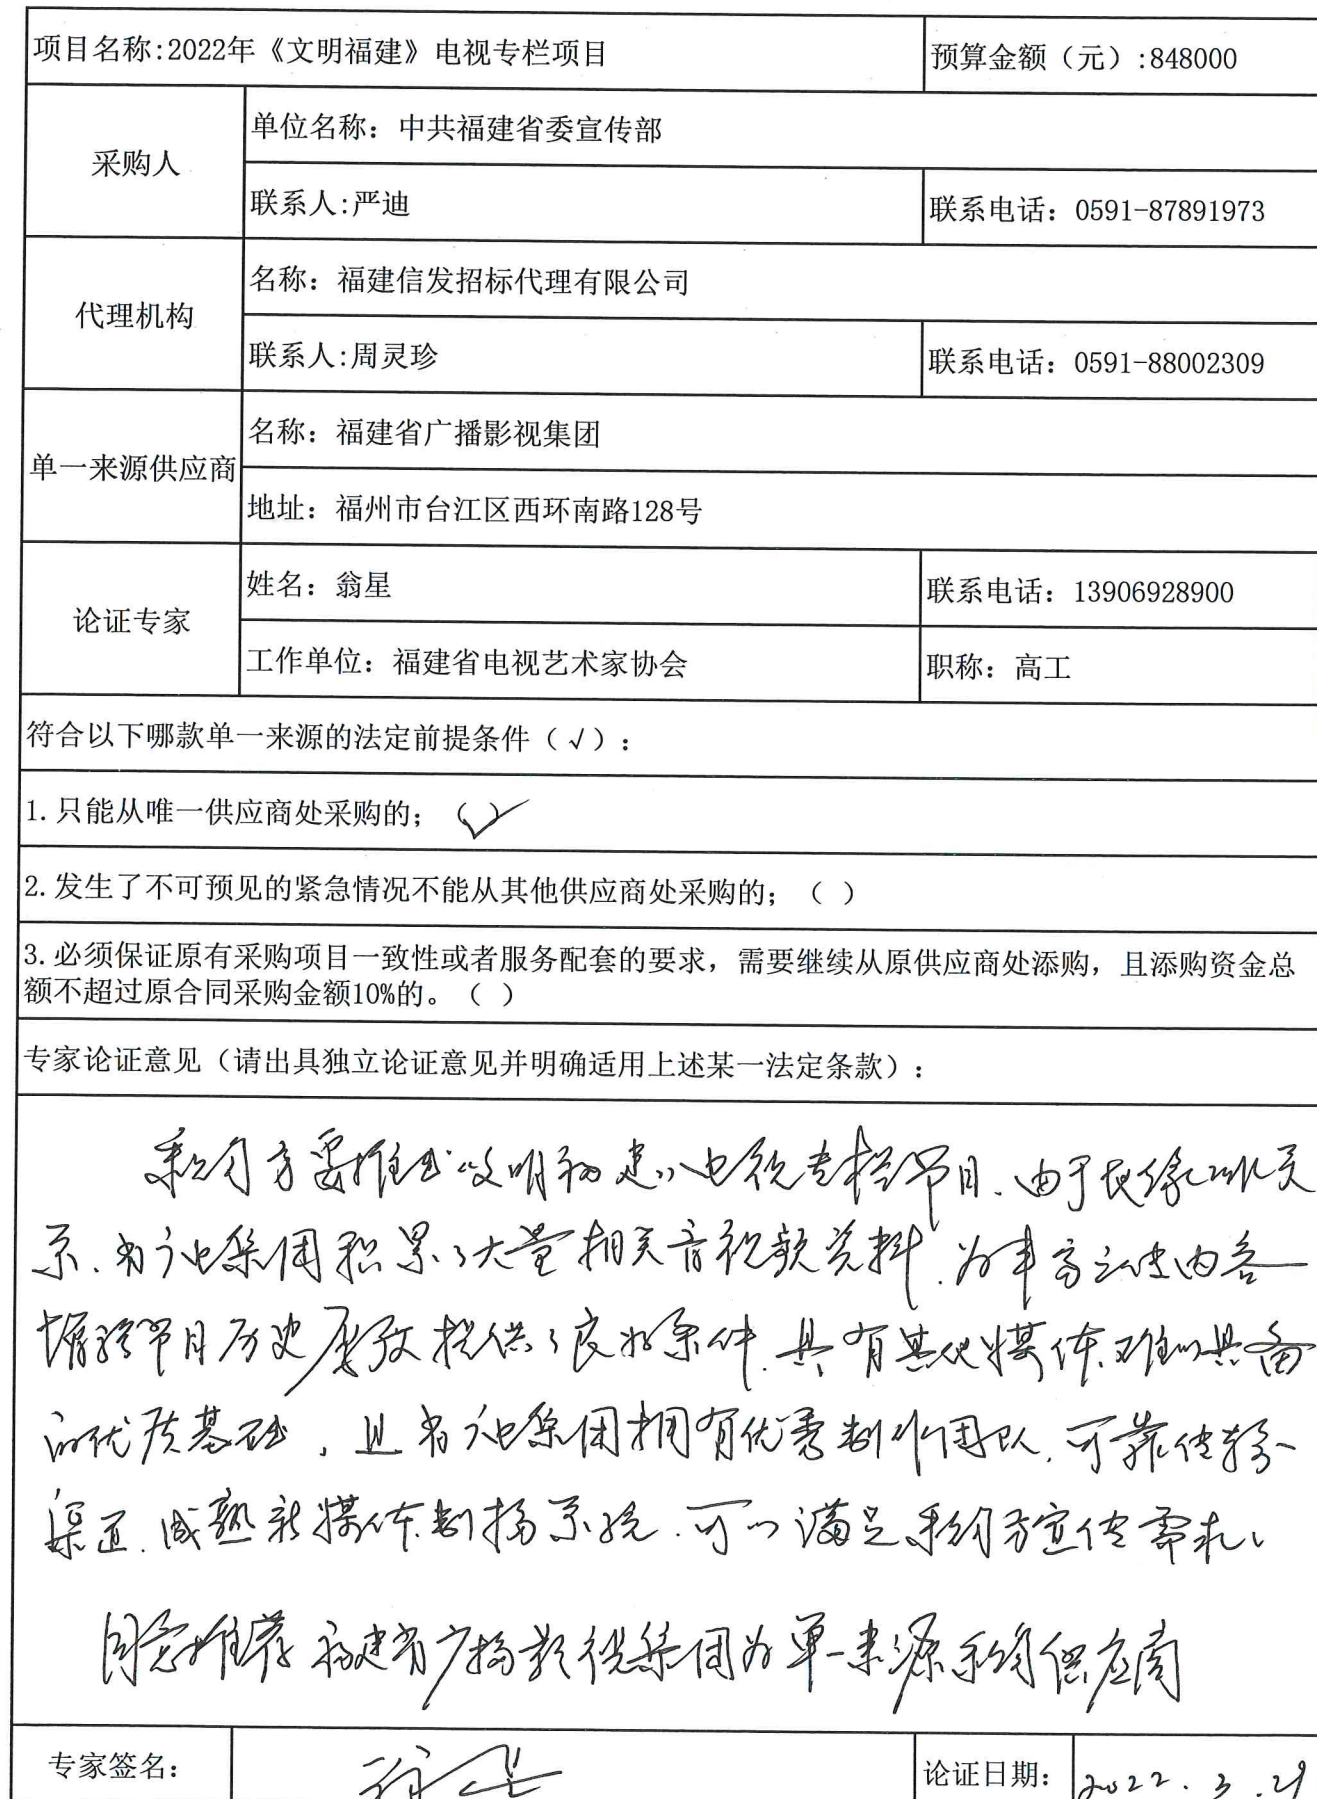 项目名称:2022年《文明福建》电视专栏项目
预算金额（元）:848000
采购人
单位名称：中共福建省委宣传部
联系人:严迪
联系电话：0591-87891973
代理机构
名称：福建信发招标代理有限公司
联系人:周灵珍
联系电话：0591-88002309
单一来源供应商
名称：福建省广播影视集团
地址：福州市台江区西环南路128号
论证专家
姓名：翁星
联系电话：13906928900
工作单位：福建省电视艺术家协会
职称：高工
符合以下哪款单一来源的法定前提条件（√）：
1.只能从唯一供应商处采购的；（✓）
2.发生了不可预见的紧急情况不能从其他供应商处采购的；（ ）
3.必须保证原有采购项目一致性或者服务配套的要求，需要继续从原供应商处添购，且添购资金总
额不超过原合同采购金额10%的。（ ）
专家论证意见（请出具独立论证意见并明确适用上述某一法定条款）：
采购方要推出“文明福建”电视专栏节目、由于长缘关
系、省广电集团积累了大量相关音视频资料、为丰富内容
增强节目历史厚致提供了良好条件、具有其他媒体难以具备
的优质基础，且省广电集团拥有优秀制作团队、可靠传播
渠道、成熟新媒体制播系统、可以满足采购方宣传需求。
同意推荐福建省广播影视集团为单一来源采购供应商
专家签名：
翁星
论证日期：
2022.3.29